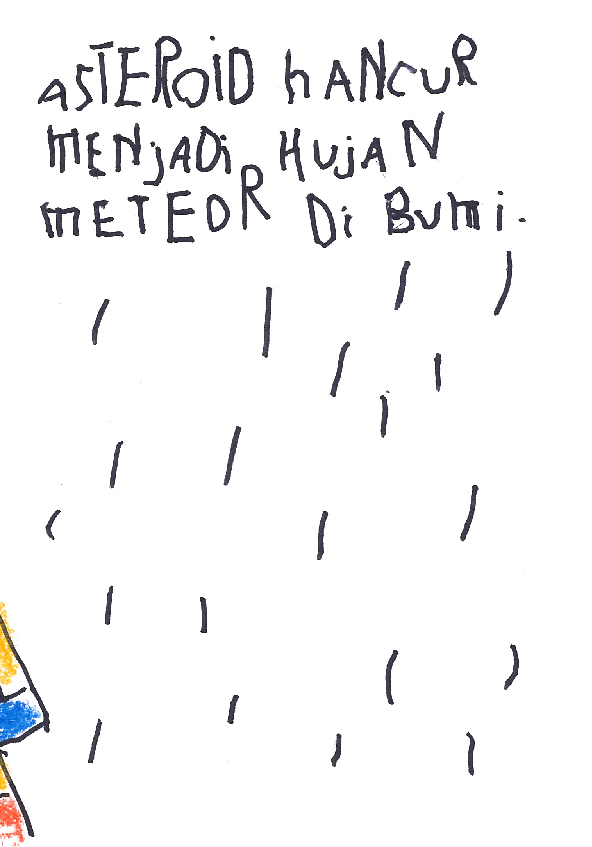 ASTEROiD hANCUR
MENjADi HUjAN
METEOR Di BUMi.